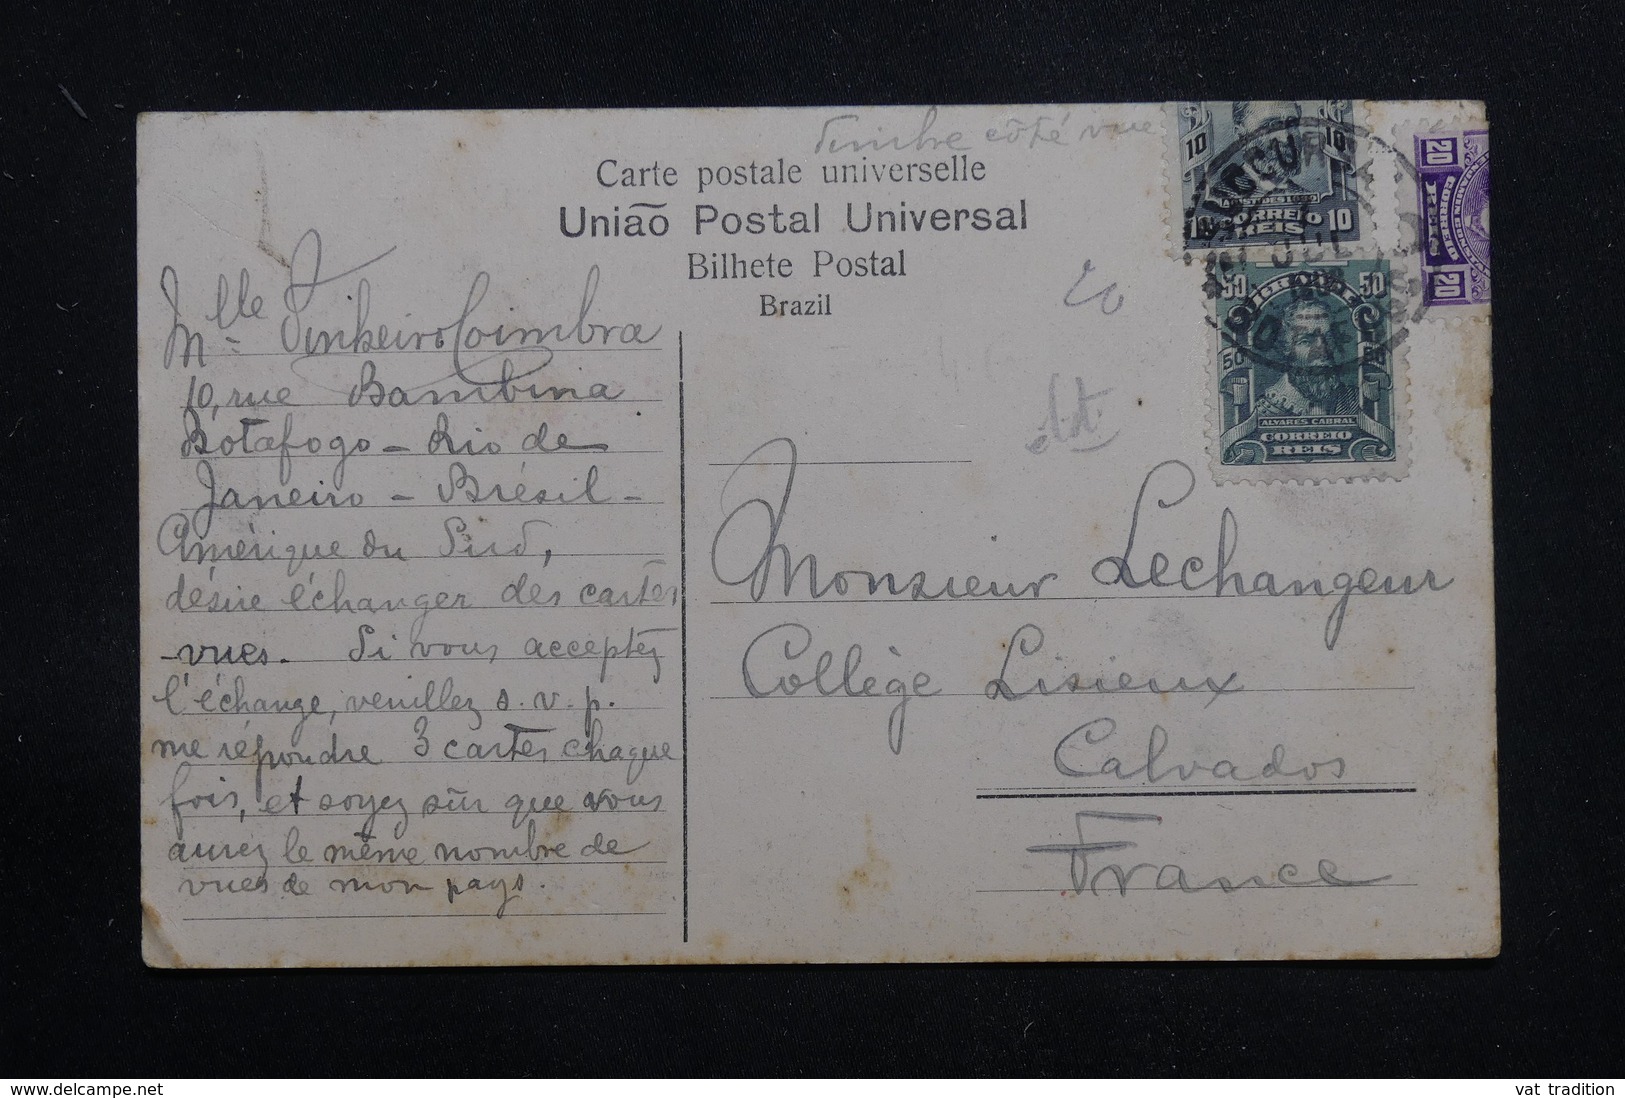 Timbre côté vue
Carte postale universelle
União Postal Universal
Bilhete Postal
Brazil
Mlle Pinheiro Coimbra
10, rue Bambina
Botafogo - Rio de
Janeiro - Brésil -
Amérique du Sud,
désire échanger des cartes
-vues. Si vous acceptez
l'échange, veuillez s. v. p.
me répondre 3 cartes chaque
fois, et soyez sûr que vous
aurez le même nombre de
vues de mon pays.
10 10
10 CORREIO 10
REIS
20 20
CORREIO
50 50
50 50
ALVARES CABRAL
CORREIO
REIS
Monsieur Lechangeur
Collège Lisieux
Calvados
France
vat tradition